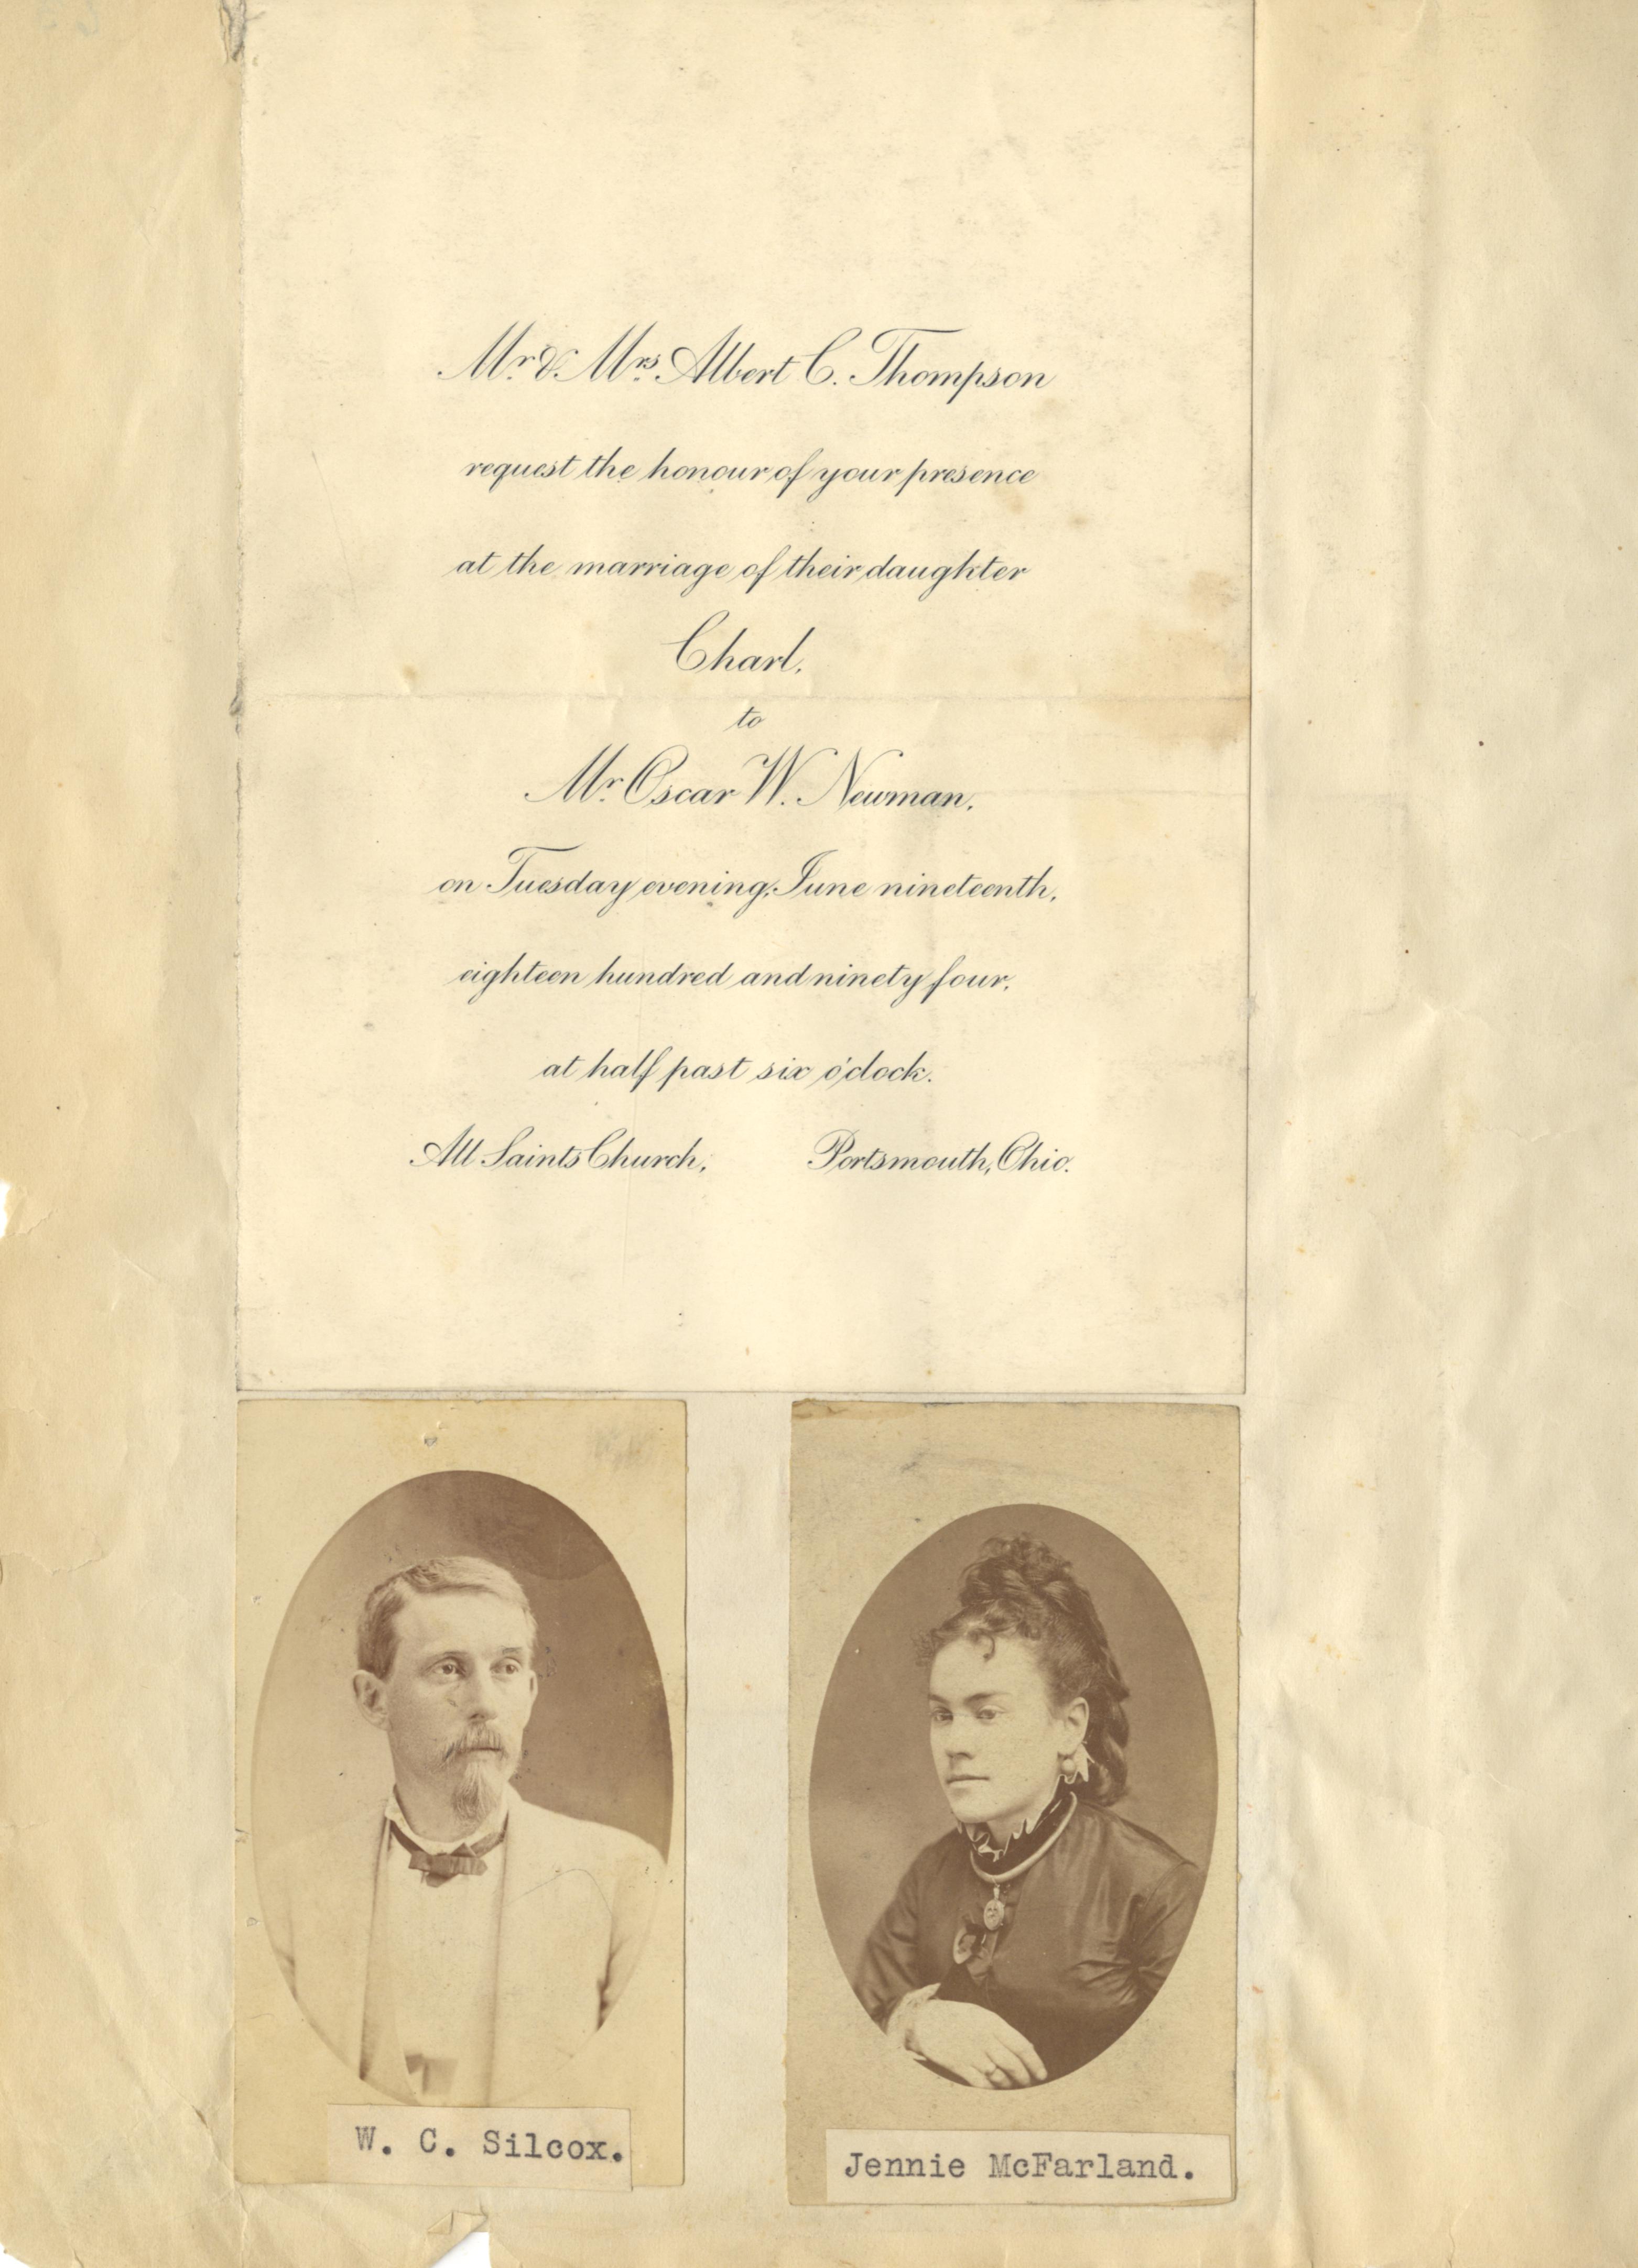 Mr. & Mrs. Albert C. Thompson
request the honour of your presence
at the marriage of their daughter
Charl,
to
Mr. Oscar W. Newman,
on Tuesday evening, June nineteenth,
eighteen hundred and ninety four,
at half past six o'clock.
All Saints Church, Portsmouth, Ohio.
W. C. Silcox.
Jennie McFarland.